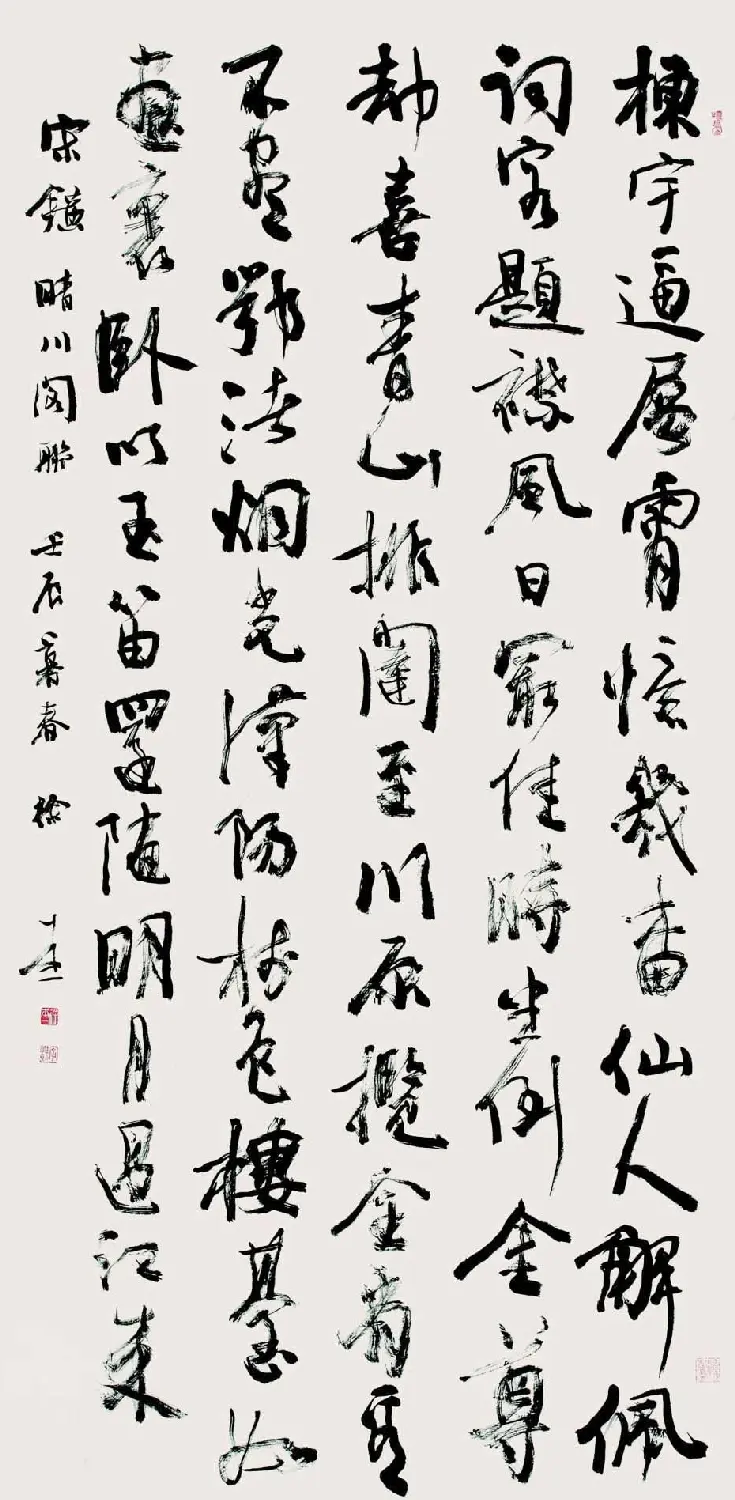 棟宇逼層霄憶幾番仙人解佩
詞客題襟風日最佳時坐倒金尊
却喜青山排闥至川原攬全省看
不盡鄂渚烟光漢陽樹色樓臺如
畫裏卧吹玉笛還随明月過江来
宋鎰晴川阁联 壬辰暮春 徐